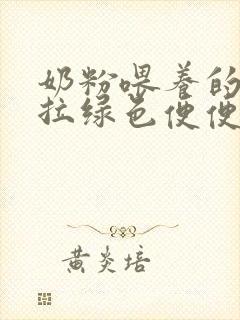 奶粉喂养的
拉绿色便便
黄炎培